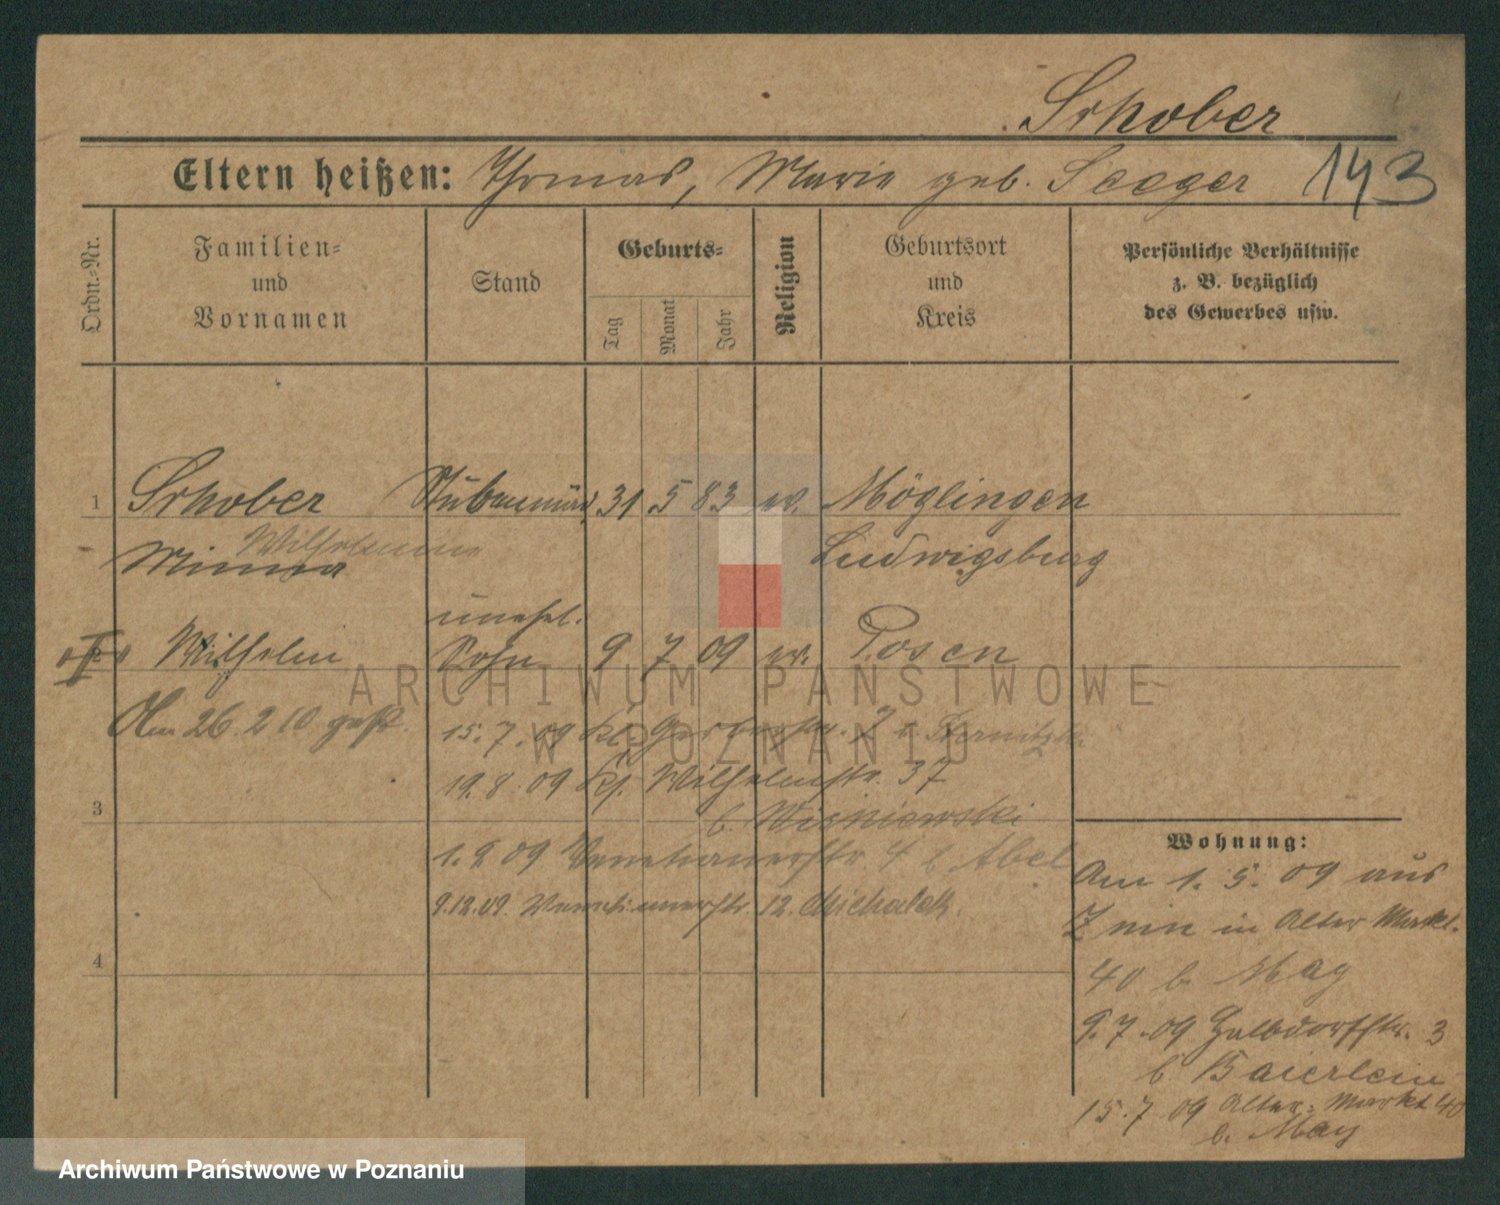 Schober
Eltern heißen: Thomas, Marie geb. Seeger 143
Ordn.-Nr.
Familien-
und
Vornamen
Stand
Geburts-
Tag
Monat
Jahr
Religion
Geburtsort
und
Kreis
Persönliche Verhältnisse
z. B. bezüglich
des Gewerbes usw.
1 Schober 31 5 83 ev. Möglingen
Wilhelmine
Minna Ludwigsburg
unehel.
Wilhelm Sohn 9 7 09 ev. Posen
Am 26 2 10 gest. 15.7.09 Kl. Gerberstr. 7 b.
19.8.09 Kj. Wilhelmstr. 37
3
b. Wisniewski
1.9 09 Venetianerstr. 4 b Abel
9.12.09. Venetianerstr. 12. Michalak.
4
Wohnung:
Am 1. 5. 09 aus
Znin in Alter Markt.
40 b. May
9.7.09 Halbdorfstr. 3
b Baierlein
15.7 09 Alter Markt 40
b. May
ARCHIWUM PAŃSTWOWE
W POZNANIU
Archiwum Państwowe w Poznaniu